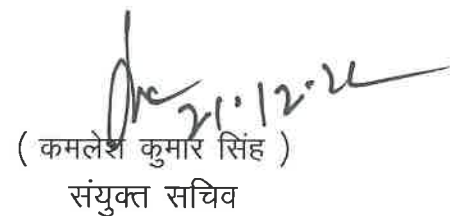 21.12.21
( कमलेश कुमार सिंह )
संयुक्त सचिव